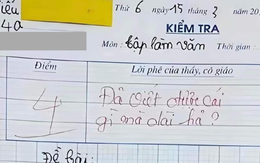 Thứ 6 ngày 15 tháng 3 năm 20
4a
KIỂM TRA
Môn: tập làm văn Thời gian:
Điểm
Lời phê của thầy, cô giáo
4
Đã viết được cái
gì mà dài hả?
Đề bài: